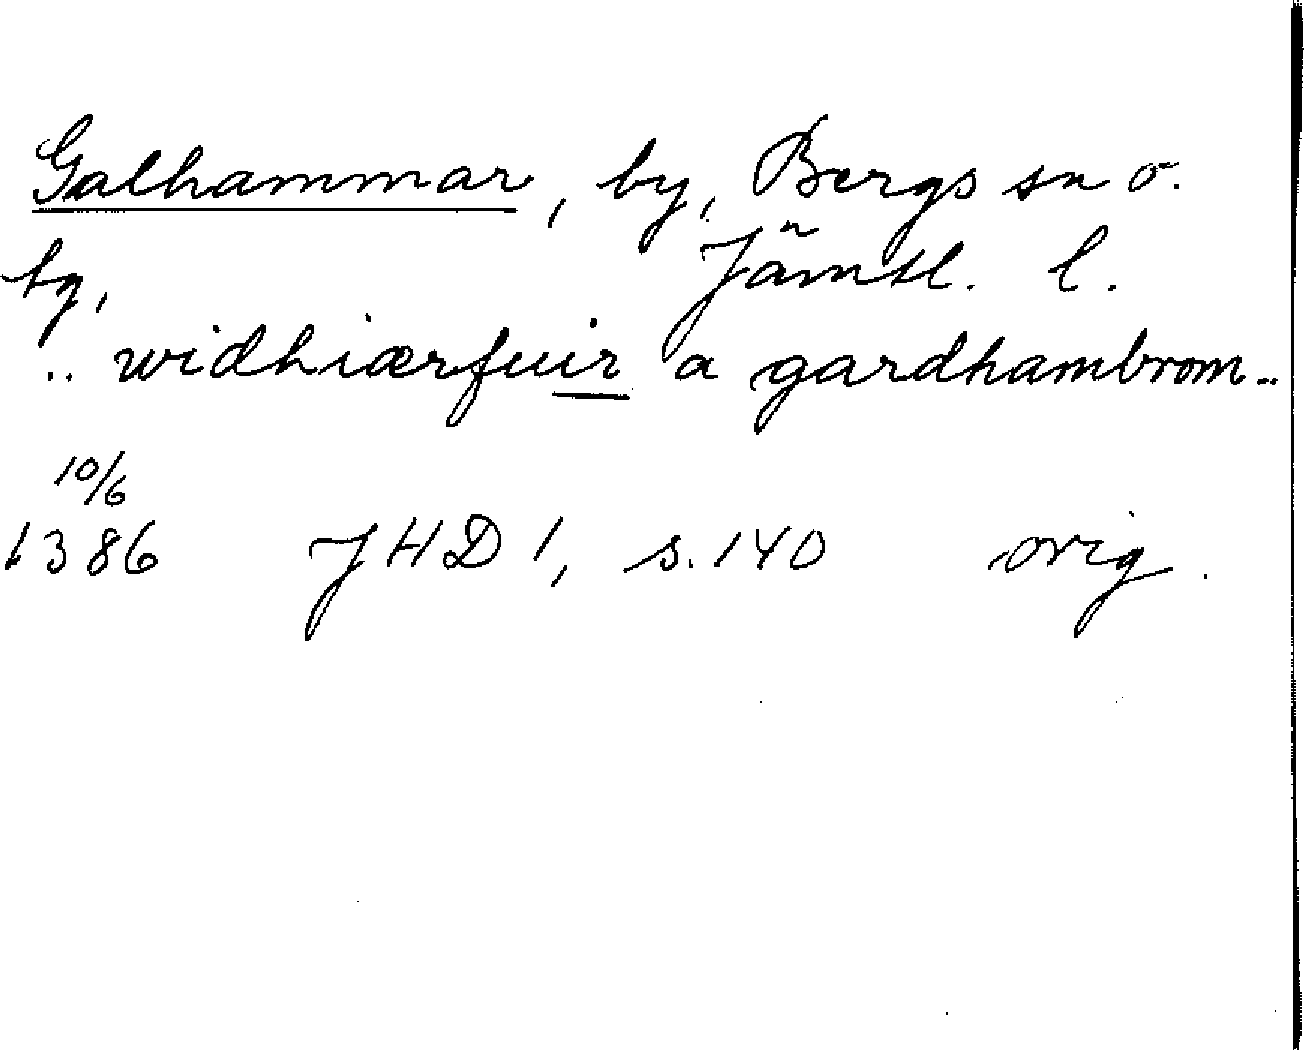 Galhammar, by, Bergs sn o.
tg, Jämtl. l.
.. widhiærfuir a gardhambrom..
10/6
1386 JHD 1, s. 140 orig.